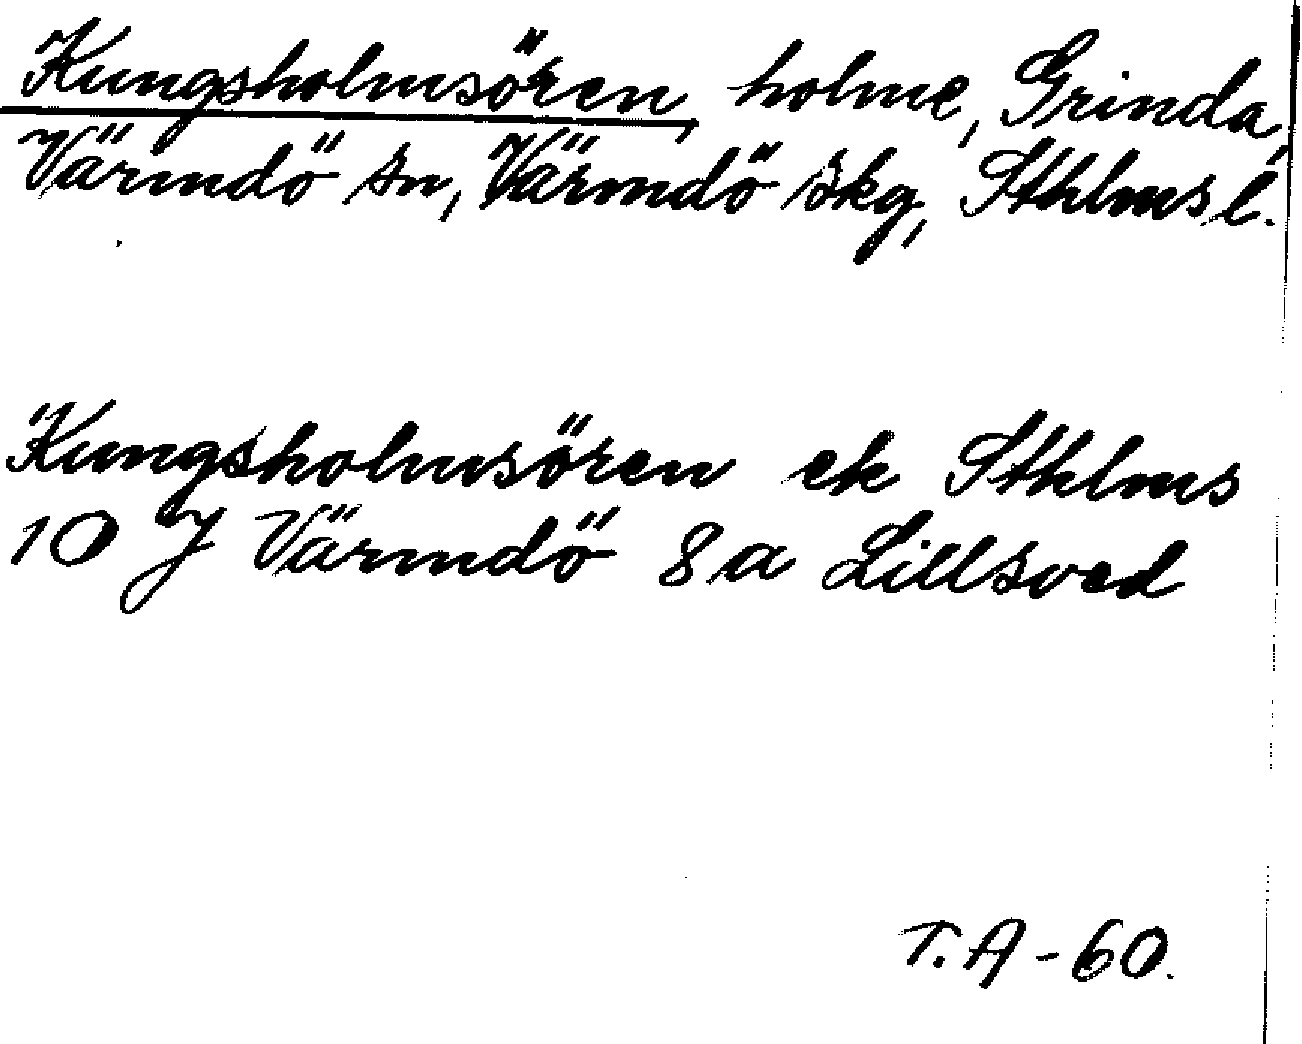 Kungsholmsören, holme, Grinda,
Värmdö sn, Värmdö skg, Sthlms l.
Kungsholmsören ek Sthlms
10 J Värmdö 8a Lillsved
T.A-60.